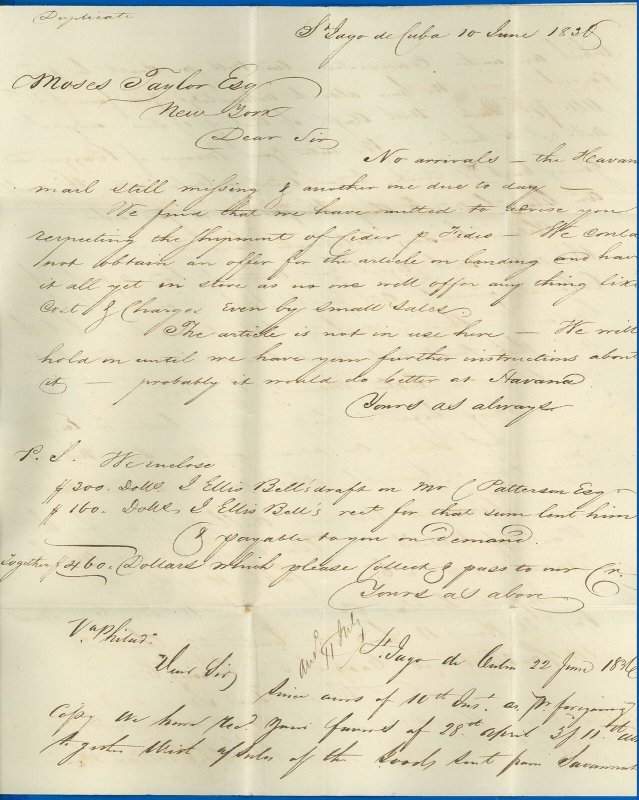 Duplicate
St Jago de Cuba 10 June 1836
Moses Taylor Esq
New York
Dear Sir
No arrivals – the Havan
mail still missing & another one due to day –
We find that we have omitted to advise you
respecting the shipment of Cider p Fides – We could
not obtain an offer for the article on landing and have
it all yet in store as no one will offer any thing like
Cost & Charges Even by small sales
The article is not in use here – We will
hold on until we have your further instructions about
it – probably it would do better at Havana
Yours as always
P. S. We enclose
$ 300. Dolls. J Ellis Bell's draft on Mr C Patterson Esqr
$ 160. Dolls J Ellis Bell's rect for that sum lent him
& payable to you on demand.
Together $ 460. Dollars which please Collect & pass to our Cr.
Yours as above
Va Philada
ansd 11 July
St. Jago de Cuba 22 June 1836
Dear Sir
Since ours of 10th Inst. as pr foregoing
Copy We have Recd Your favors of 28th April & 11th
together with a/sales of the Goods sent from Savannah